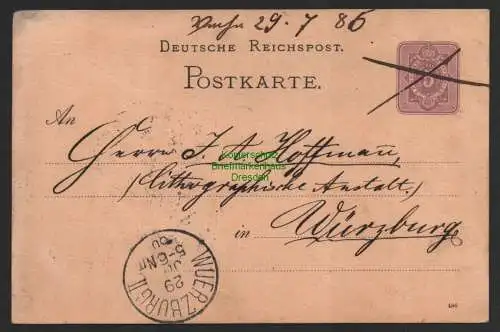 Vacha 29. 7 86
DEUTSCHE REICHSPOST.
POSTKARTE.
5
An
Herrn J. A. Hoffmann,
Komersches
Briefmarkenhaus
Dresden
(Lithographische Anstalt.)
in Würzburg
WUERZBURG II.
29
JUL
5-6 Nt